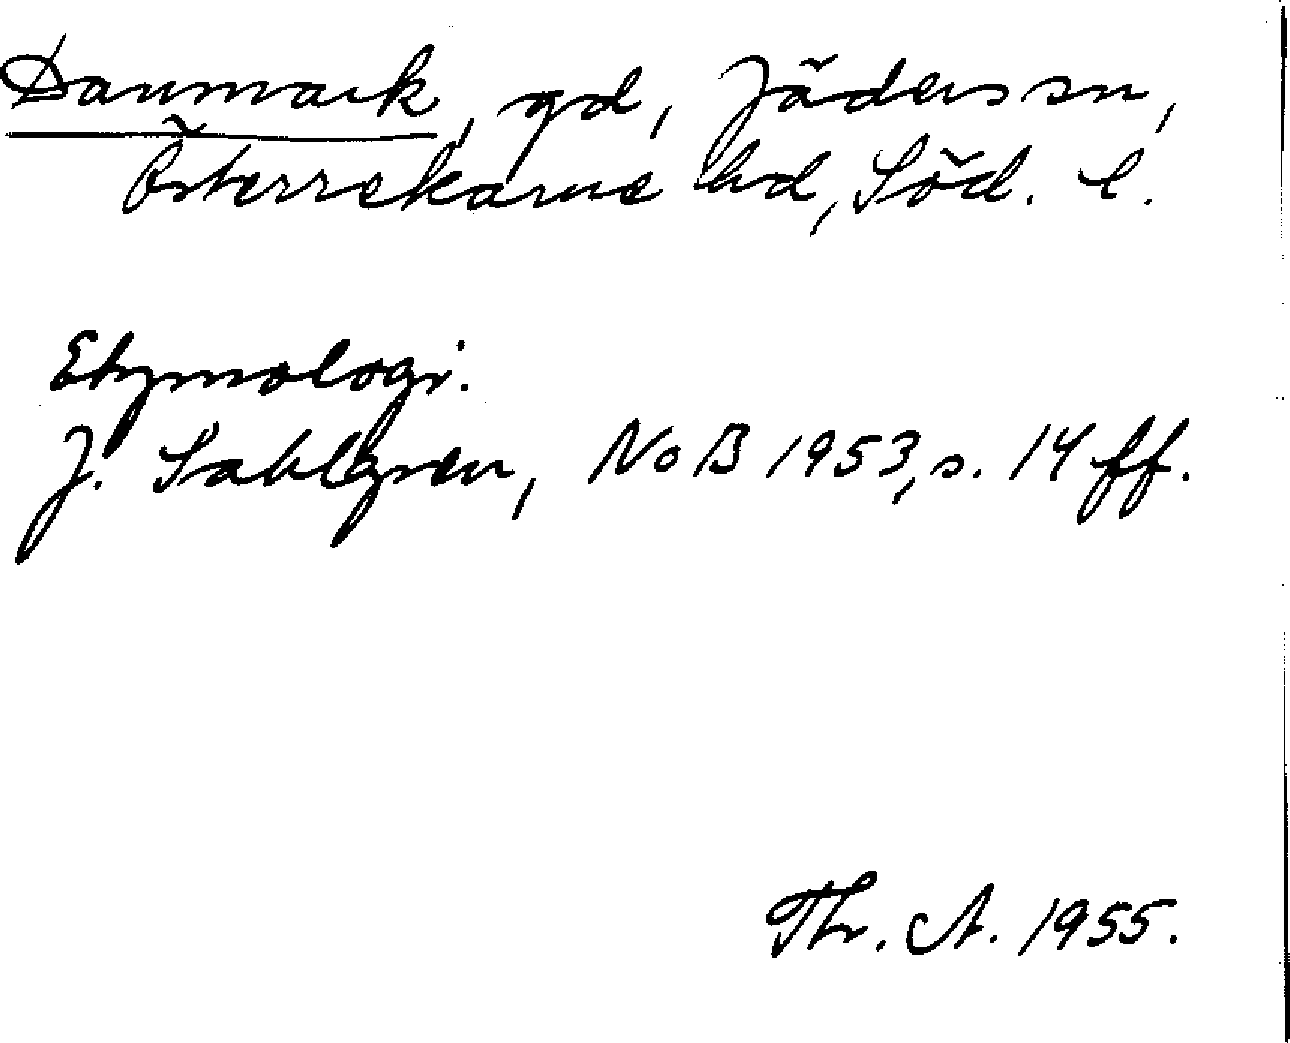 Danmark, gd, Jäders sn,
Österrekarne hd, Söd. l.
Etymologi.
J. Sahlgren, NoB 1953, s. 14 ff.
Thr. A. 1955.